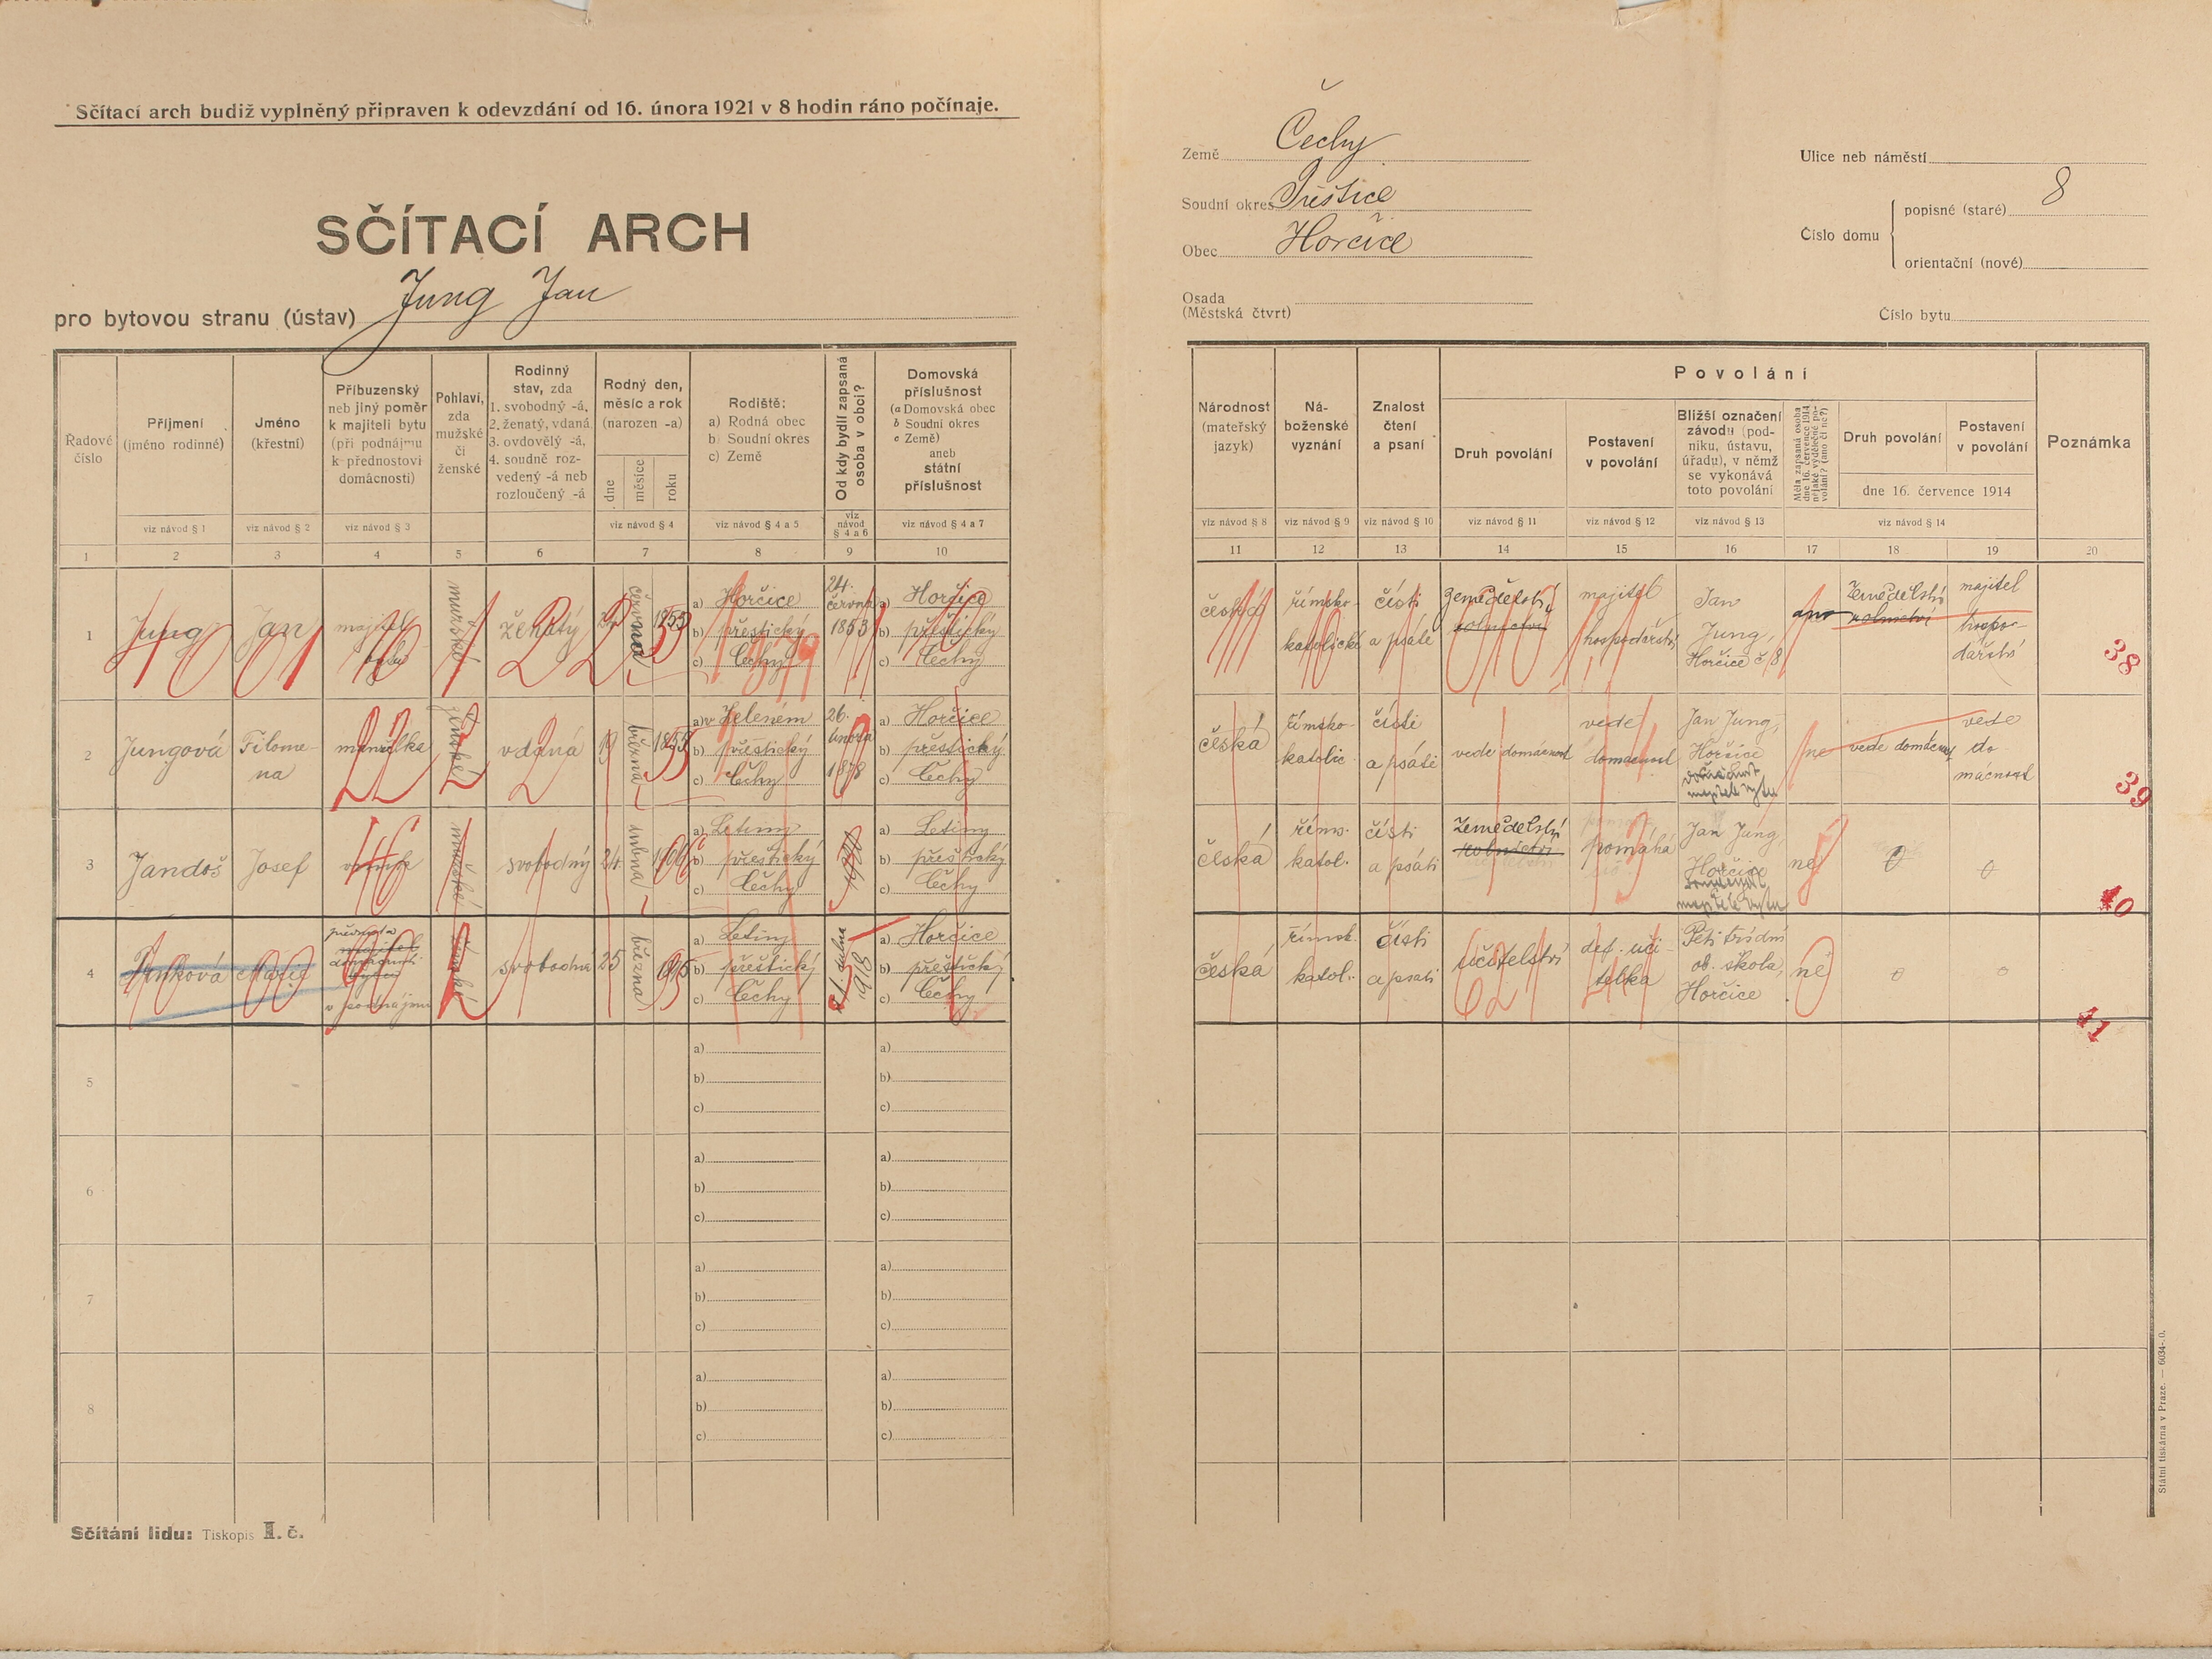 Sčítací arch budiž vyplněný připraven k odevzdání od 16. února 1921 v 8 hodin ráno počínaje.
SČÍTACÍ ARCH
pro bytovou stranu (ústav) Jung Jan
Země Čechy
Soudní okres
Obec Horčice
Osada
(Městská čtvrt)
Ulice neb náměstí
Číslo domu
popisné (staré) 8
orientační (nové)
Číslo bytu
Řadové
číslo
Příjmení
(jméno rodinné)
viz návod § 1
Jméno
(křestní)
viz návod § 2
Příbuzenský
neb jiný poměr
k majiteli bytu
(při podnájmu
k přednostovi
domácnosti)
viz návod § 3
Pohlaví,
zda
mužské
či
ženské
Rodinný
stav, zda
1. svobodný -á,
2. ženatý, vdaná
3. ovdovělý -á,
4. soudně roz-
vedený -á neb
rozloučený -á
Rodný den,
měsíc a rok
(narozen -a)
dne
měsíce
roku
viz návod § 4
Rodiště:
a) Rodná obec
b) Soudní okres
c) Země
viz návod § 4 a 5
Od kdy bydlí zapsaná
osoba v obci?
viz
návod
§ 4 a 6
Domovská
příslušnost
(a Domovská obec
b Soudní okres
c Země)
aneb
státní
příslušnost
viz návod § 4 a 7
Národnost
(mateřský
jazyk)
viz návod § 8
Ná-
boženské
vyznání
viz návod § 9
Znalost
čtení
a psaní
viz návod § 10
Povolání
Druh povolání
viz návod § 11
Postavení
v povolání
viz návod § 12
Bližší označení
závodu (pod-
niku, ústavu,
úřadu), v němž
se vykonává
toto povolání
viz návod § 13
Měla zapsaná osoba
dne 16. července 1914
nějaké výdělečné po-
volání? (ano či ne?)
Druh povolání
Postavení
v povolání
dne 16. července 1914
viz návod § 14
Poznámka
1 2 3 4 5 6 7 8 9 10 11 12 13 14 15 16 17 18 19 20
1 Jung Jan majitel bytu mužské ženatý června
a) Horčice
b) přeštický
c) Čechy
24. června 1853
a) Horčice
b) přeštický
c) Čechy
česká
římsko-
katolické
čísti
a psáti
Zemědělství
rolnictví
majitel
hospodářství
Jan
Jung,
Horčice č. 8
ano
Zemědělství
rolnictví
majitel
hospo-
dářství
38
2 Jungová Filome-
na
manželka ženské vdaná 19 března
b) přeštický
c) Čechy
26.
února
1878
a) Horčice
b) přeštický
c) Čechy
česká
římsko-
katolic.
čísti
a psáti
vede domácnost
vede
domácnost
Jan Jung,
Horčice
domácnost
majitele bytu
ne
vede domácnost
vede
do-
mácnost
39
3 Jandoš Josef mužské svobodný 24. dubna 1906
a) Letiny
b) přeštický
c) Čechy
a) Letiny
b) přeštický
c) Čechy
česká
říms.
katol.
čísti
a psáti
Zemědělství
rolnictví
pomáhá
Jan Jung
Horčice
majitele bytu
ne
0
0
40
4 Marie
v podnájmu
ženské svobodná 25 března
a) Letiny
b) přeštický
c) Čechy
dubna 1918
a) Horčice
b) přeštický
c) Čechy
česká
římsk.
katol.
čísti
a psáti
učitelství
def. uči-
telka
Pěti třídní
ob. škola,
Horčice
ne
0
0
41
5
a)
b)
c)
a)
b)
c)
6
a)
b)
c)
a)
b)
c)
7
a)
b)
c)
a)
b)
c)
8
a)
b)
c)
a)
b)
c)
Sčítání lidu: Tiskopis I. č.
Státní tiskárna v Praze. — 6034-. 0.